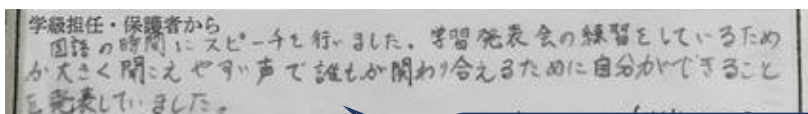 学級担任・保護者から
国語の時間にスピーチを行いました。学習発表会の練習をしているため
か大きく聞こえやすい声で誰もが関わり合えるために自分ができること
を発表していました。